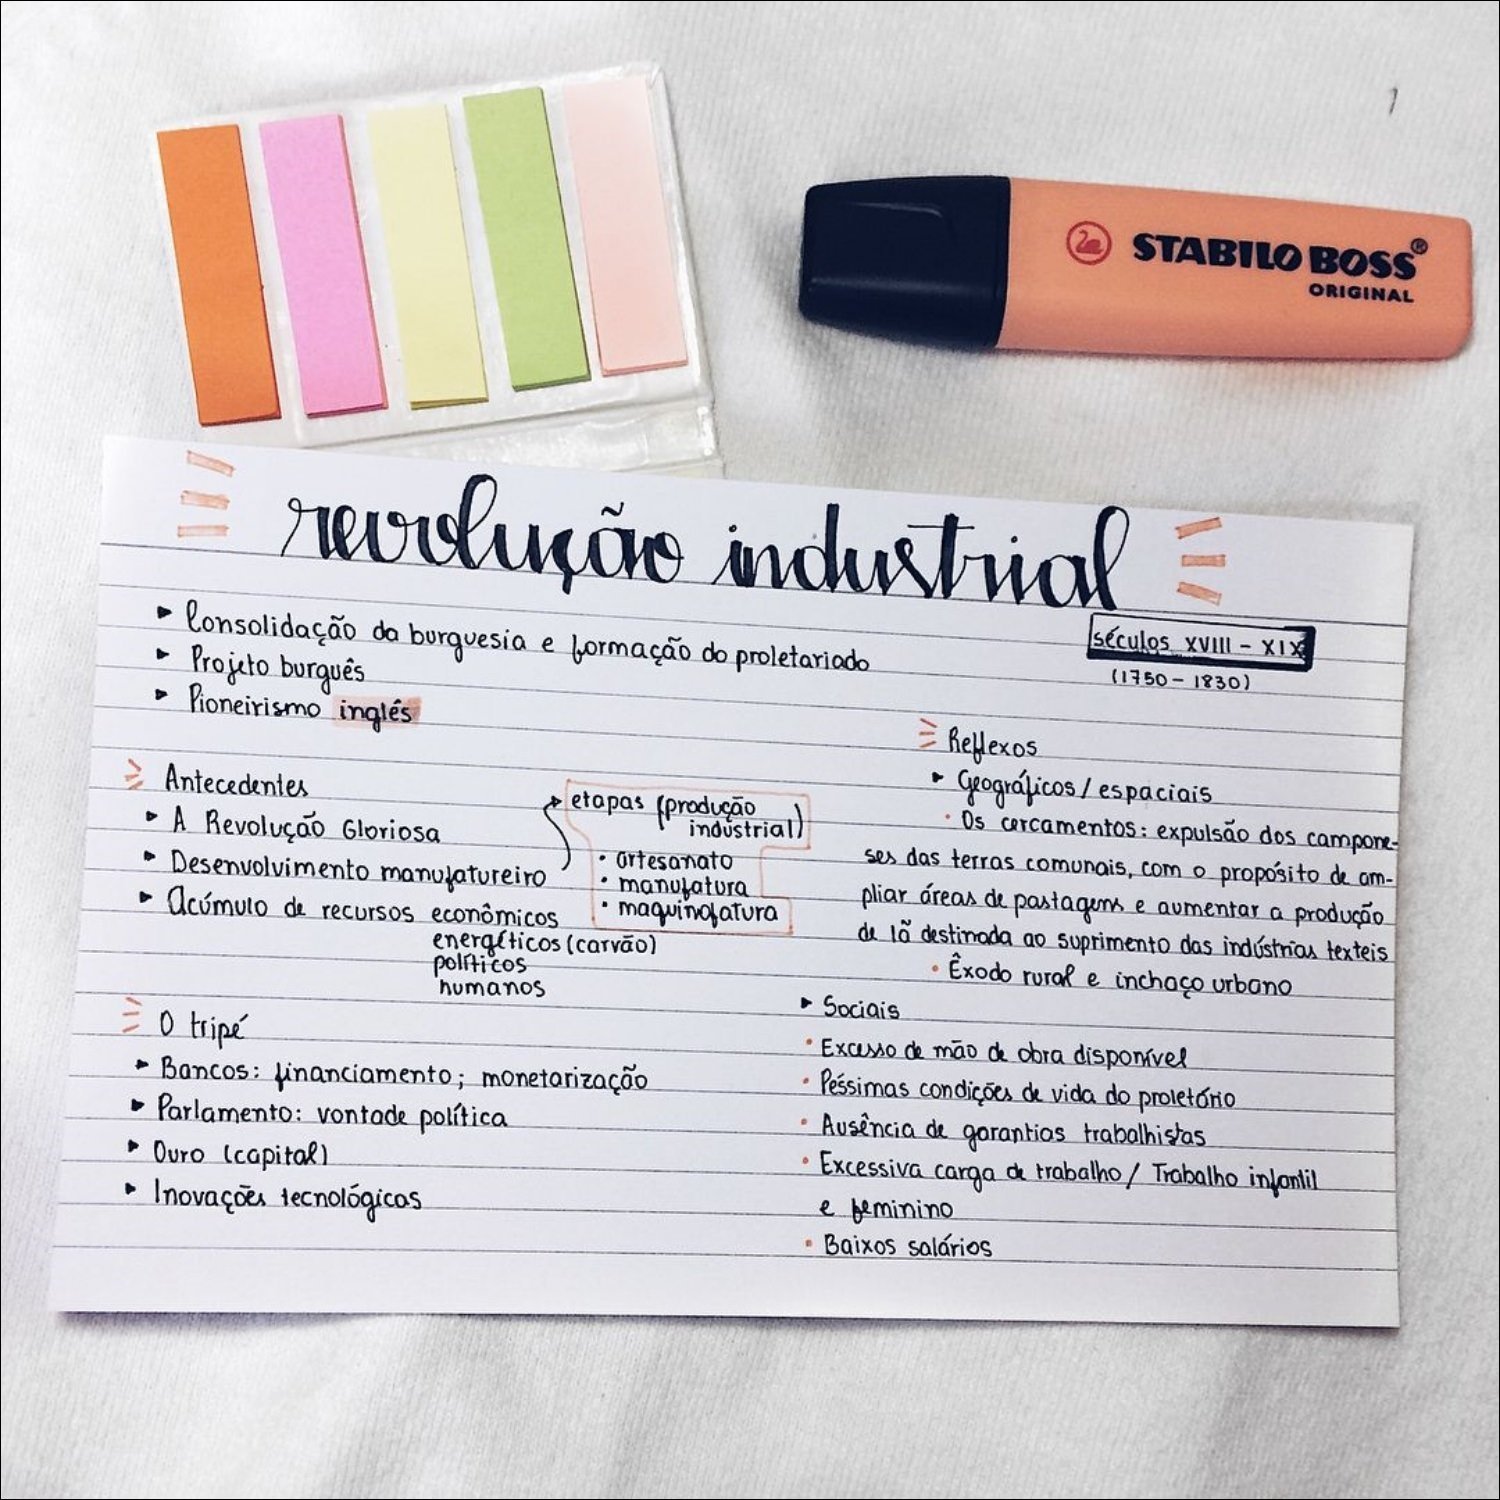 STABILO BOSS®
ORIGINAL
revolução industrial
séculos XVIII - XIX
(1750 - 1830)
Consolidação da burguesia e formação do proletariado
Projeto burguês
Pioneirismo inglês
Antecedentes
A Revolução Gloriosa
Desenvolvimento manufatureiro
Acúmulo de recursos econômicos
energéticos (carvão)
políticos
humanos
etapas (produção
industrial)
• artesanato
• manufatura
• maquinofatura
O tripé
Bancos: financiamento; monetarização
Parlamento: vontade política
Ouro (capital)
Inovações tecnológicas
Reflexos
Geográficos / espaciais
• Os cercamentos: expulsão dos campone-
ses das terras comunais, com o propósito de am-
pliar áreas de pastagens e aumentar a produção
de lã destinada ao suprimento das indústrias texteis
• Êxodo rural e inchaço urbano
Sociais
• Excesso de mão de obra disponível
• Péssimas condições de vida do proletório
• Ausência de garantias trabalhistas
• Excessiva carga de trabalho / Trabalho infantil
e feminino
• Baixos salários